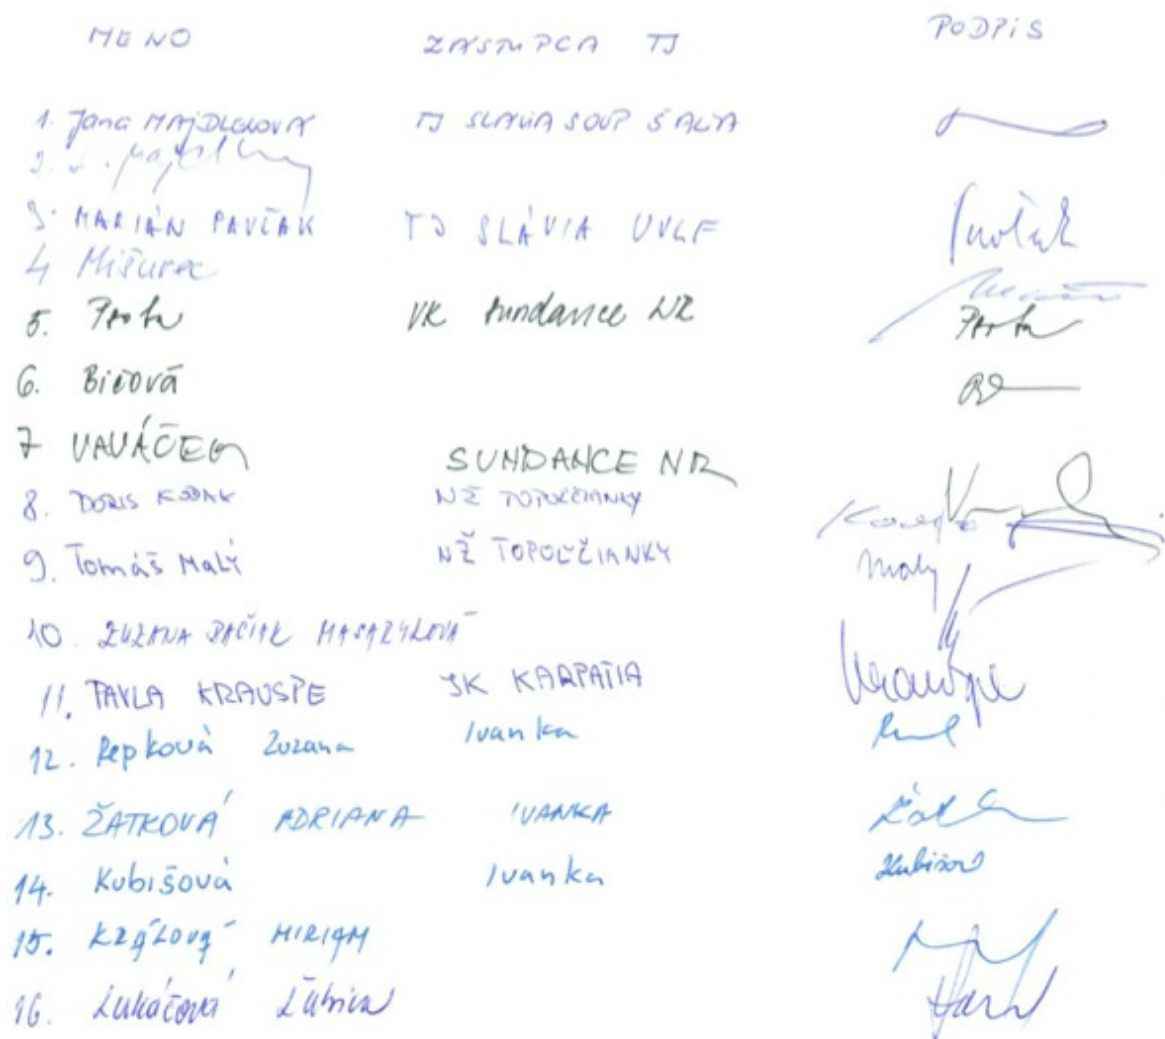 MENO ZÁSTUPCA TJ PODPIS
1. Jana MAJDLENOVÁ TJ SLÁVIA SOUP ŠAĽA
2.
3. MARIÁN PAVČAK TJ SLÁVIA UVLF Pavčak
4 Mišurec
5. Porta VK Sundance NR Porta
6. Bičová
7 VAVÁČEK SUNDANCE NR
8. DORIS NŽ TOPOĽČIANKY
9. Tomáš Malý NŽ TOPOĽČIANKY Malý
10. ZUZANA BAČIAK MASARYKOVÁ
11. PAVLA KRAUSPE JK KARPATIA Krauspe
12. Repková Zuzana Ivanka
13. ŽATKOVÁ ADRIANA IVANKA
14. Kubišová Ivanka Kubišov
15. KRÁĽOVÁ MIRIAM
16. Lukáčová Ľubica